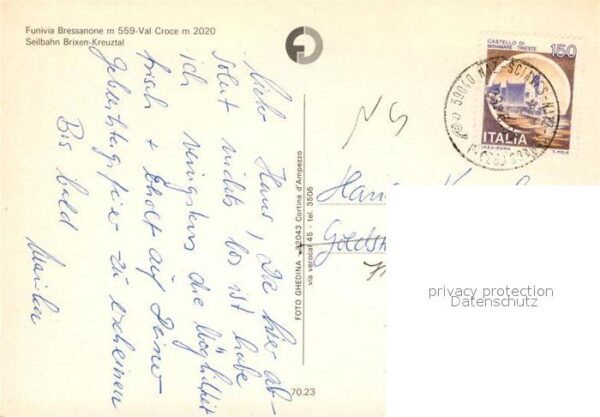 Funivia Bressanone m 559-Val Croce m 2020
Seilbahn Brixen-Kreuztal
Lieber Hans, Da hier ab-
solut nichts los ist habe
ich wenigstens die Möglichkeit
frisch + erholt auf Deiner
Geburtstagsfeier zu erscheinen
Bis bald
FOTO GHEDINA - 32043 Cortina d'Ampezzo
via verocai 45 - tel. 3505
70.23
CASTELLO DI
MIRAMARE - TRIESTE
150
ITALIA
39040 NAZ-SCIAVES
privacy protection
Datenschutz